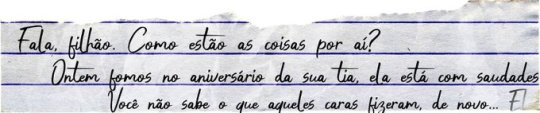 Fala, filhão. Como estão as coisas por aí?
Ontem fomos no aniversário da sua tia, ela está com saudades
Você não sabe o que aqueles caras fizeram, de novo...